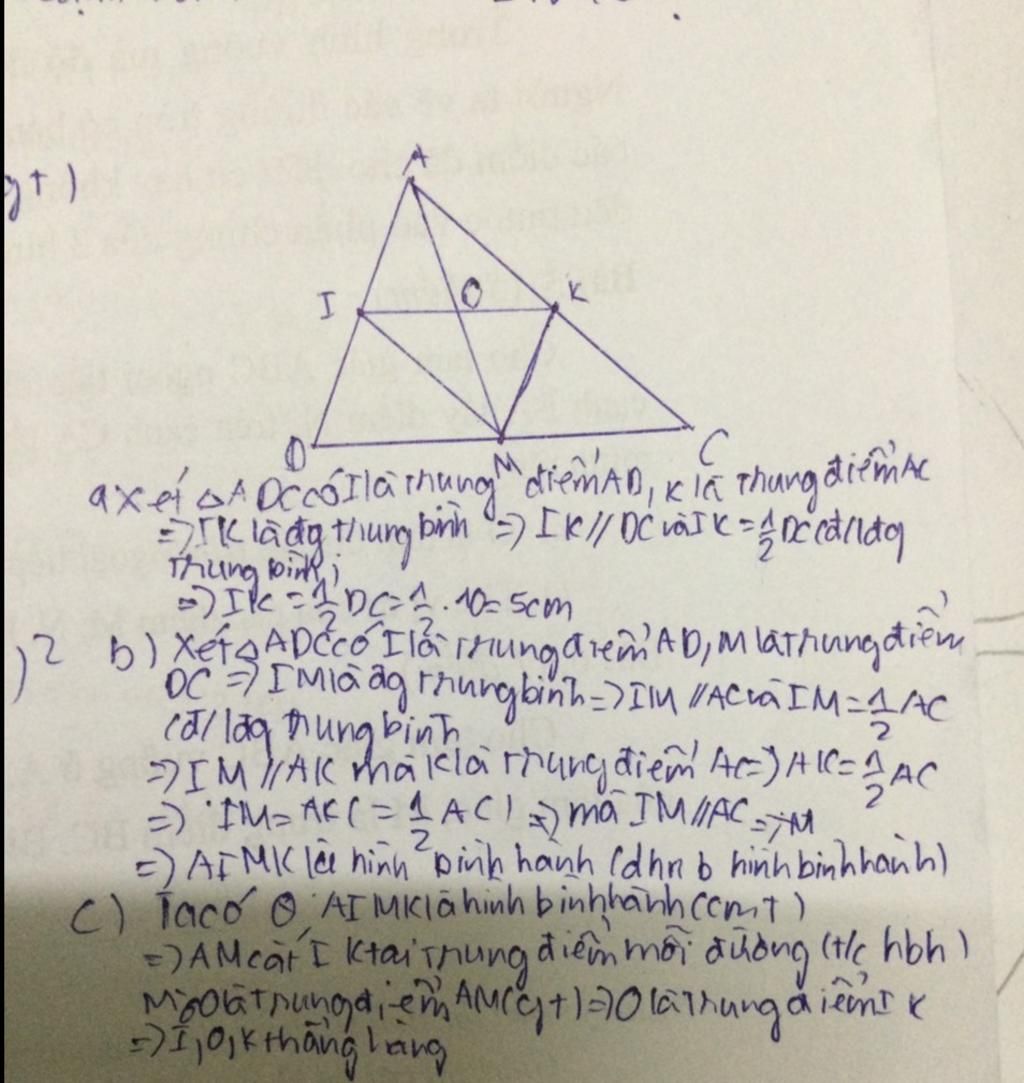 gt)
A
I
O
K
D
M
C
a Xét △ADC có I là trung điểm AD, K là trung điểm AC
=> IK là đg trung bình => IK // DC và IK = 1/2 DC (đ/l đg
trung bình)
=> IK = 1/2 DC = 1/2 . 10 = 5cm
)2
b) Xét △ADC có I là trung điểm AD, M là trung điểm
DC => IM là đg trung bình => IM // AC và IM = 1/2 AC
(đ/l đg trung bình
=> IM // AK mà K là trung điểm AC => AK = 1/2 AC
=> IM = AK ( = 1/2 AC ) => mà IM // AC => M
=> AIMK là hình bình hành (dhnb hình bình hành)
c) Ta có AIMK là hình bình hành (cmt)
=> AM cắt IK tại trung điểm mỗi đường (t/c hbh)
Mà O là trung điểm AM (gt) => O là trung điểm IK
=> I, O, K thẳng hàng